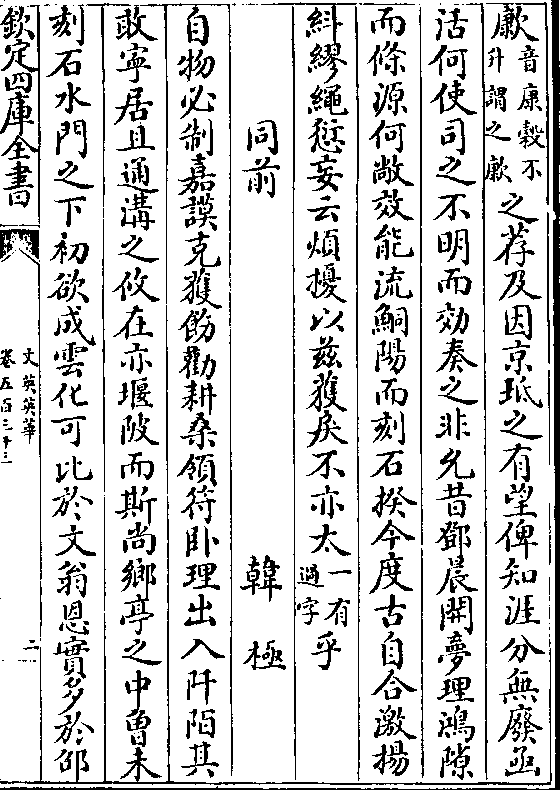 歉音康穀不升謂之歉之荐及因京坻之有望俾知涯分無廢亟
活何使司之不明而効奏之非允昔鄧晨開夢理鴻隙
而條源何敞效能流鮦陽而刻石揆今度古自合激揚
糾繆繩愆妄云煩擾以兹獲戾不亦太一有過字乎
同前 韓極
自物必制嘉謨克獲飭勸耕桑領待卧理出入阡陌其
敢寧居且通溝之攸在亦堰陂而斯尚鄉亭之中曽未
刻石水門之下初欲成雲化可比於文翁恩實多於邵
欽定四庫全書
文英英華
卷五百三十三
二